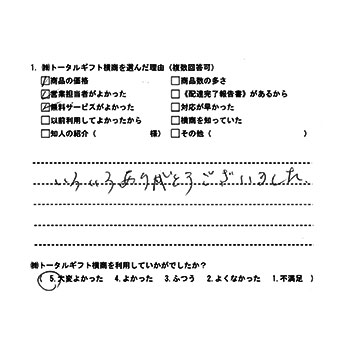 1. ㈱トータルギフト横商を選んだ理由（複数回答可）
☑商品の価格 □商品数の多さ
☑営業担当者がよかった □《配達完了報告書》があるから
☑無料サービスがよかった □対応が早かった
□以前利用してよかったから □横商を知っていた
□知人の紹介（ 様） □その他（ ）
いろいろありがとうございました。
㈱トータルギフト横商を利用していかがでしたか？
（ 5. 大変よかった 4. よかった 3. ふつう 2. よくなかった 1. 不満足 ）